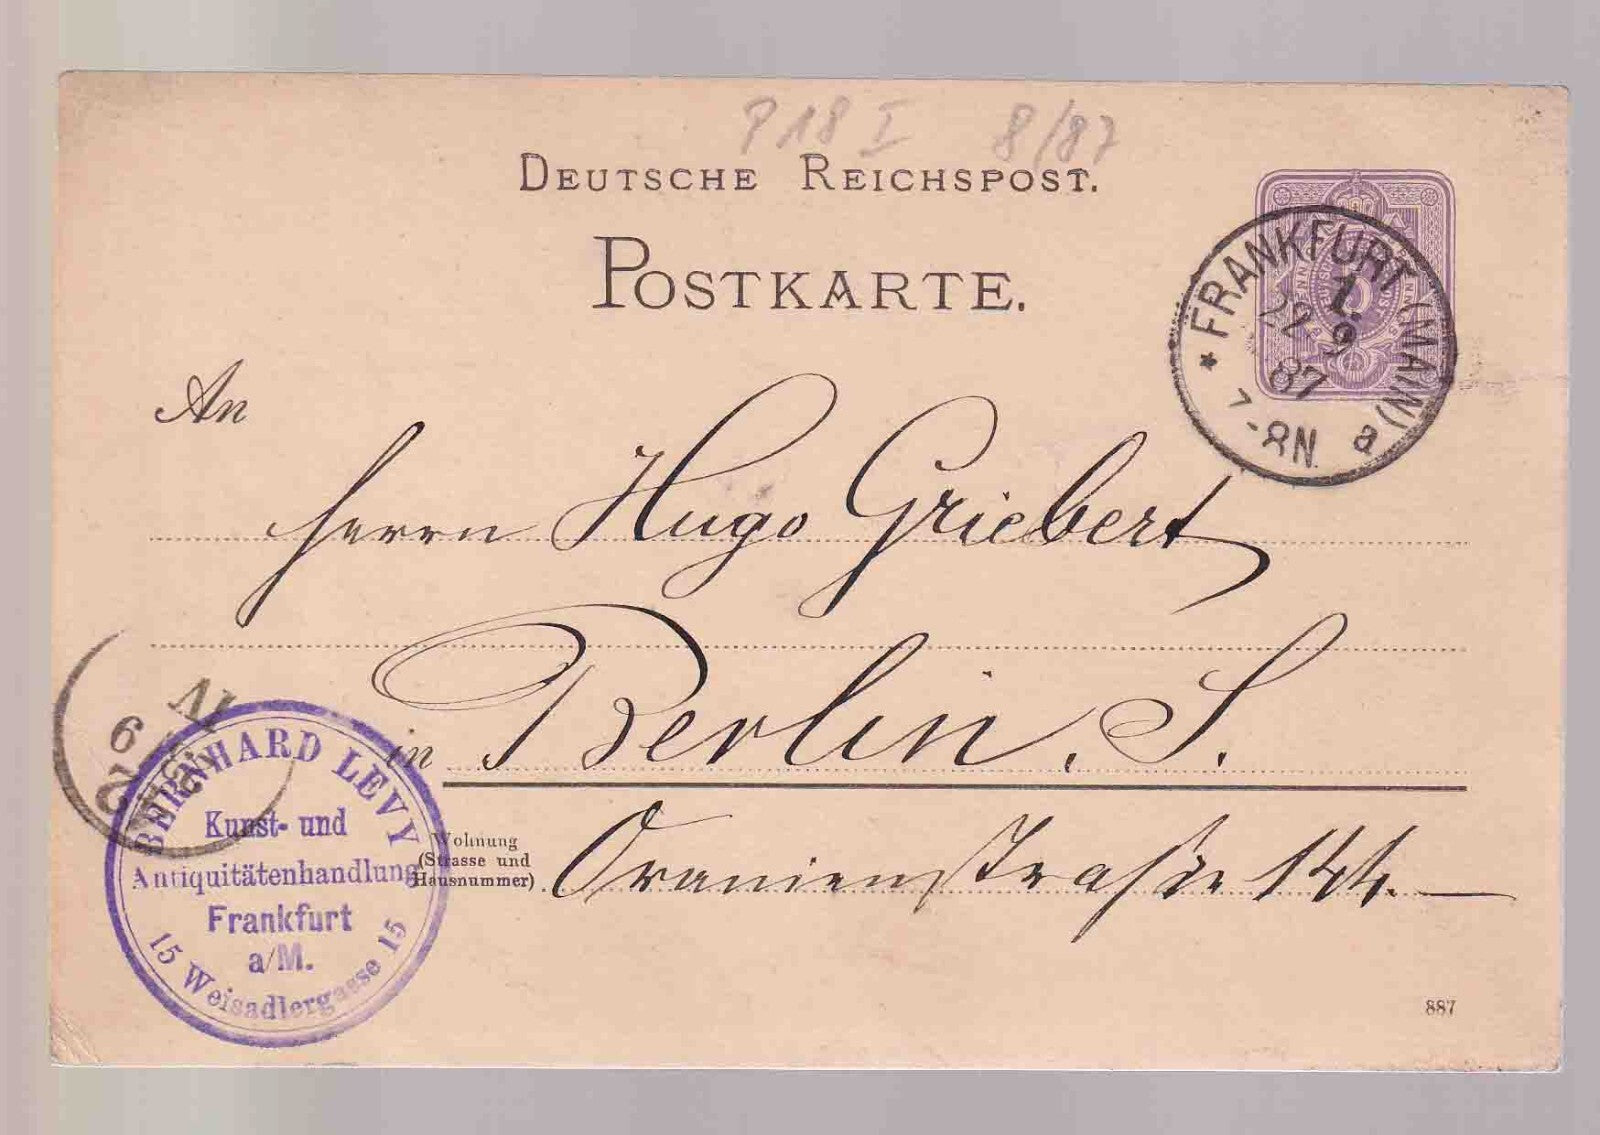 P 18 I 8/87
DEUTSCHE REICHSPOST.
POSTKARTE.
FRANKFURT (MAIN)
1.
29 9
87
7-8N.
a
An
Herrn Hugo Griebert
in Berlin. S.
Wohnung
(Strasse und
Hausnummer)
Oranienstraße 144.
BERNHARD LEVY
Kunst- und
Antiquitätenhandlung
Frankfurt
a/M.
15 Weisadlergasse 15
887